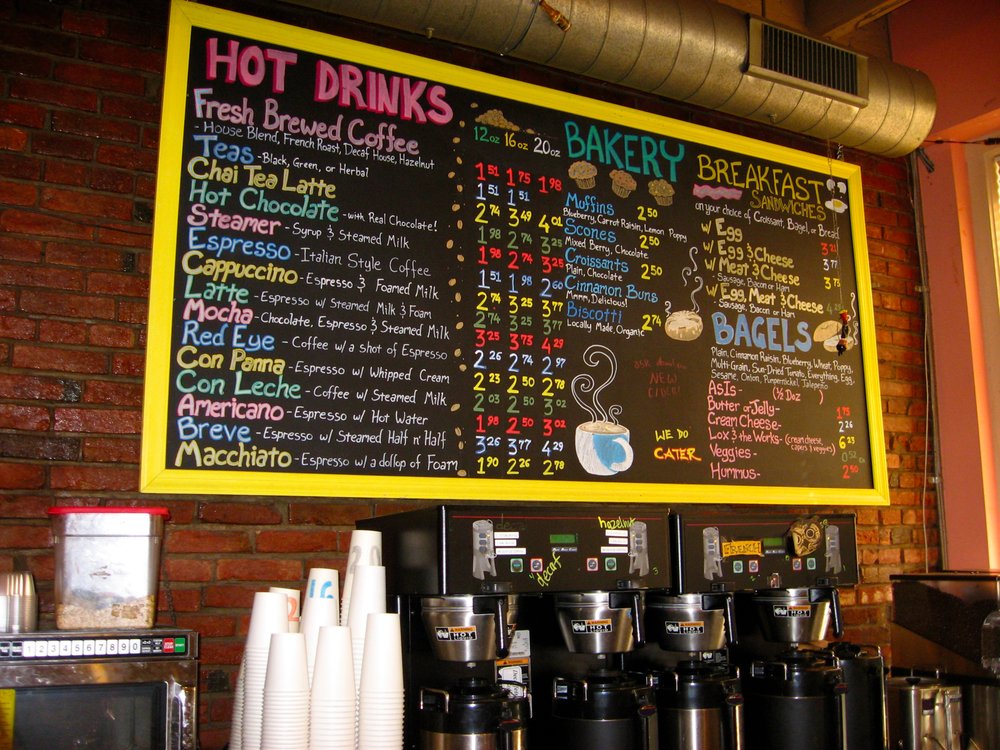 HOT DRINKS
12oz 16oz 20oz
Fresh Brewed Coffee 1 51 1 75 1 98
- House Blend, French Roast, Decaf House, Hazelnut
Teas - Black, Green, or Herbal 1 51 1 51
Chai Tea Latte 2 74 3 49 4 01
Hot Chocolate - with Real Chocolate! 1 98 2 74 3 25
Steamer - Syrup & Steamed Milk 1 98 2 74 3 25
Espresso - Italian Style Coffee 1 51 1 98 2 60
Cappuccino - Espresso & Foamed Milk 2 74 3 25 3 77
Latte - Espresso w/ Steamed Milk & Foam 2 74 3 25 3 77
Mocha - Chocolate, Espresso & Steamed Milk 3 25 3 73 4 29
Red Eye - Coffee w/ a shot of Espresso 2 26 2 74 2 97
Con Panna - Espresso w/ Whipped Cream 2 23 2 50 2 78
Con Leche - Coffee w/ Steamed Milk 2 03 2 50 3 02
Americano - Espresso w/ Hot Water 1 98 2 50 3 02
Breve - Espresso w/ Steamed Half n' Half 3 26 3 77 4 29
Macchiato - Espresso w/ a dollop of Foam 1 90 2 26 2 78
BAKERY
Muffins 2 50
Blueberry, Carrot Raisin, Lemon Poppy
Scones 2 50
Mixed Berry, Chocolate
Croissants 2 50
Plain, Chocolate
Cinnamon Buns
Mmmm, Delicious!
Biscotti 2 74
Locally Made, Organic
ASK about our
NEW
WE DO
CATER
BREAKFAST
SANDWICHES
on your choice of Croissant, Bagel, or Bread
w/ Egg 3 21
w/ Egg & Cheese 3 77
w/ Meat & Cheese 3 75
- Sausage, Bacon or Ham
w/ Egg, Meat & Cheese
Sausage, Bacon or Ham
BAGELS
Plain, Cinnamon Raisin, Blueberry, Wheat, Poppy,
Multi-Grain, Sun-Dried Tomato, Everything, Egg,
Sesame, Onion, Pumpernickel, Jalapeño
As Is - (½ Doz )
Butter or Jelly - 1 75
Cream Cheese - 2 26
Lox & the Works - (cream cheese, capers & veggies) 6 23
Veggies - 0 52
Hummus - 2 50
hazelnut
decaf
FRENCH
HOT
HOT
HOT
HOT
1 2 3 4 5 6 7 8 9 0
20
16